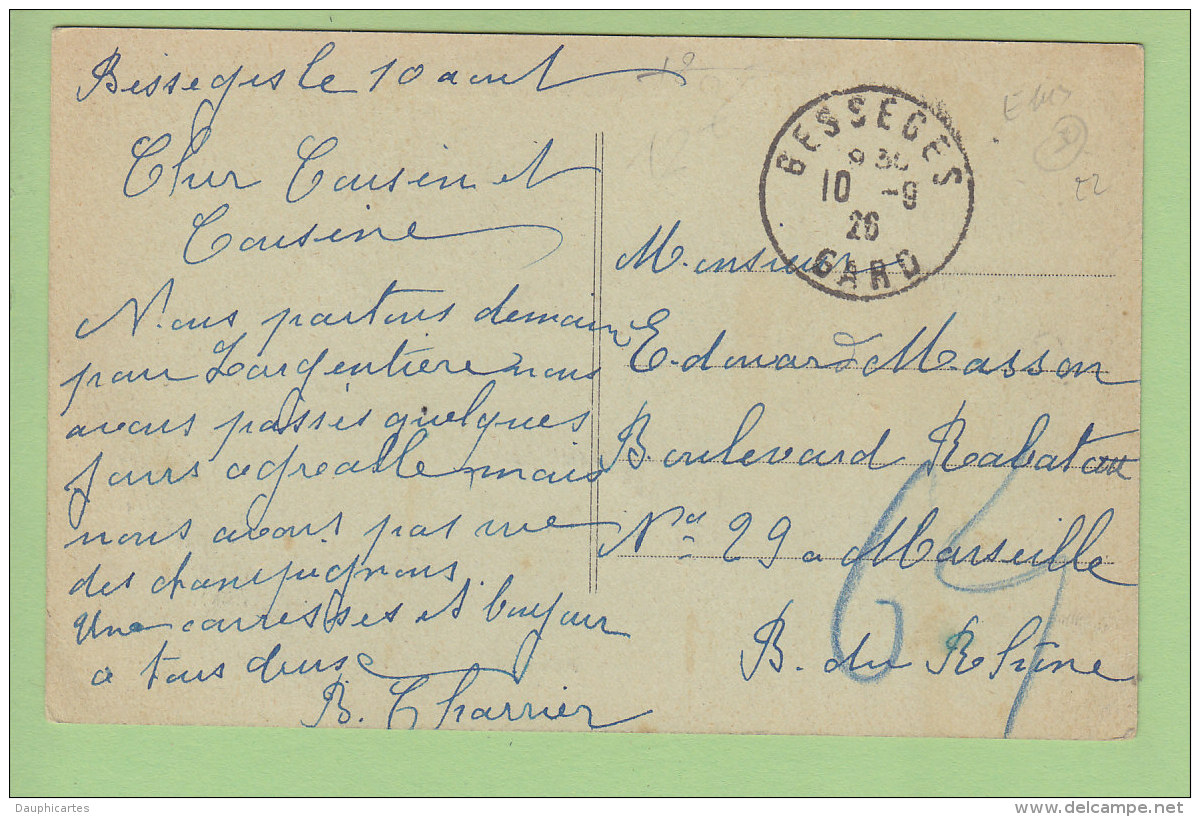 Bessegesle 10 aout
Cher Cousin et
Cousine
Nous partons demain
pour Largentière nous
avons passés quelques
jours agreable mais
nous avons pas vue
des champignons.
Une carresses et bonjour
a tous deux
B. Charrier
BESSEGES
9 30
10 -9
26
GARD
Monsieur
Edouard Masson
Boulevard Rabatau
No 29 a Marseille
B. du Rhône
69
22
Dauphicartes
delcampe.net